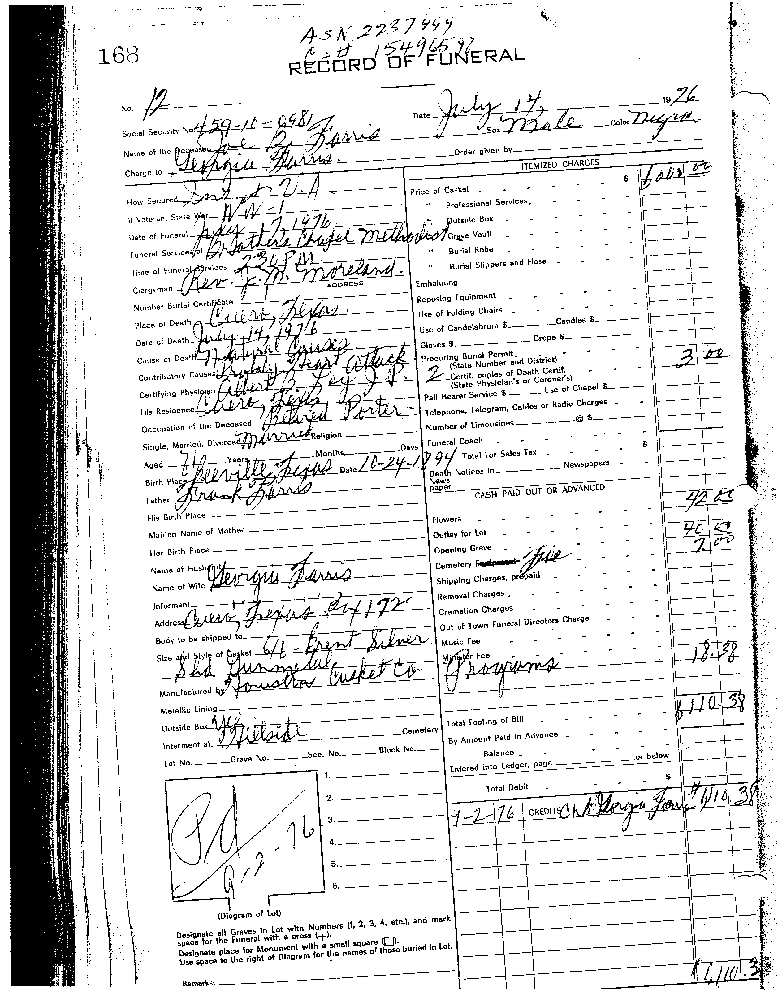 168
ASN 2237449
RECORD OF FUNERAL
No. 12
Date July 14, 1976
Social Security No. 459-10-6981
Sex Male Color Negro
Name of the Deceased Joe B. Farris
Order given by
Charge to Georgia Farris
ITEMIZED CHARGES
How Secured V-A
$ 600 00
If Veteran, State War W-W-1
Price of Casket
Date of Funeral July 1976
" Professional Services
Funeral Services at Chapel Methodist
" Outside Box
Time of Funeral Services 2:30 PM
" Grave Vault
Clergyman Rev. Moreland
" Burial Robe
ADDRESS
" Burial Slippers and Hose
Number Burial Certificate
Embalming
Place of Death Cuero, Texas
Reposing Equipment
Date of Death July 14, 1976
Use of Folding Chairs
Cause of Death Natural Causes
Use of Candelabrum $ Candles $
Contributory Causes Probably Heart Attack
Gloves $ Crepe $
Certifying Physician Albert Ley J.P.
Procuring Burial Permit
(State Number and District)
2 Certif. copies of Death Certif. 3 00
(State Physician's or Coroner's)
His Residence Cuero, Texas
Pall Bearer Service $ Use of Chapel $
Occupation of the Deceased Retired Porter
Telephone, Telegram, Cables or Radio Charges
Single, Married, Divorced Married Religion
Number of Limousines @ $
Aged Years Months Days
Funeral Coach
Birth Place Beeville Texas Date 10-24-1894
Total For Sales Tax $
Father Frank Farris
Death Notices in Newspapers
News
paper
His Birth Place
CASH PAID OUT OR ADVANCED
Maiden Name of Mother
Flowers
Her Birth Place
Outlay for Lot
Name of Husband
Opening Grave
Name of Wife Georgia Farris
Cemetery
Informant
Shipping Charges, prepaid
Address Cuero, Texas Bx 172
Removal Charges
Body to be shipped to
Cremation Charges
Size and Style of Casket 6/6 - Silver
Out of Town Funeral Directors Charge
Music Fee
Manufactured by Houston Casket Co
Minister Fee
Programs 18.38
Metallic Lining
Outside Box
Total Footing of Bill
Interment at Hillside Cemetery
By Amount Paid in Advance
Lot No. Grave No. Sec. No. Block No.
Balance
Entered into Ledger, page or below
Total Debit $
9-2-76 CREDITS Georgia
1.
2.
3.
4.
5.
6.
Pd
9-2-76
(Diagram of Lot)
Designate all Graves in Lot with Numbers (1, 2, 3, 4, etc.), and mark
space for the Funeral with a cross (+).
Designate place for Monument with a small square (□).
Use space to the right of Diagram for the names of those buried in Lot.
Remarks: